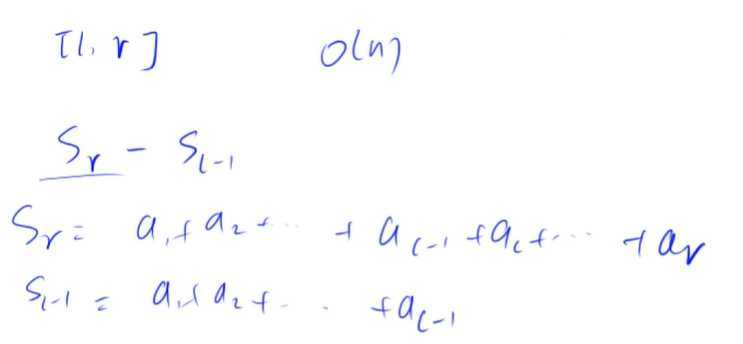 [l, r] O(n)
S_r - S_{l-1}
S_r = a_1 + a_2 + ... + a_{l-1} + a_l + ... + a_r
S_{l-1} = a_1 + a_2 + ... + a_{l-1}